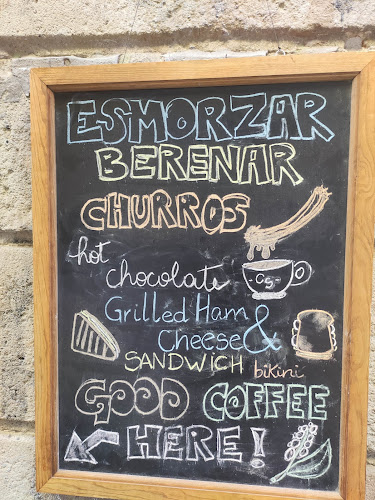 ESMORZAR
BERENAR
CHURROS
hot
chocolate
Grilled Ham
& Cheese
SANDWICH bikini
GOOD COFFEE
HERE!